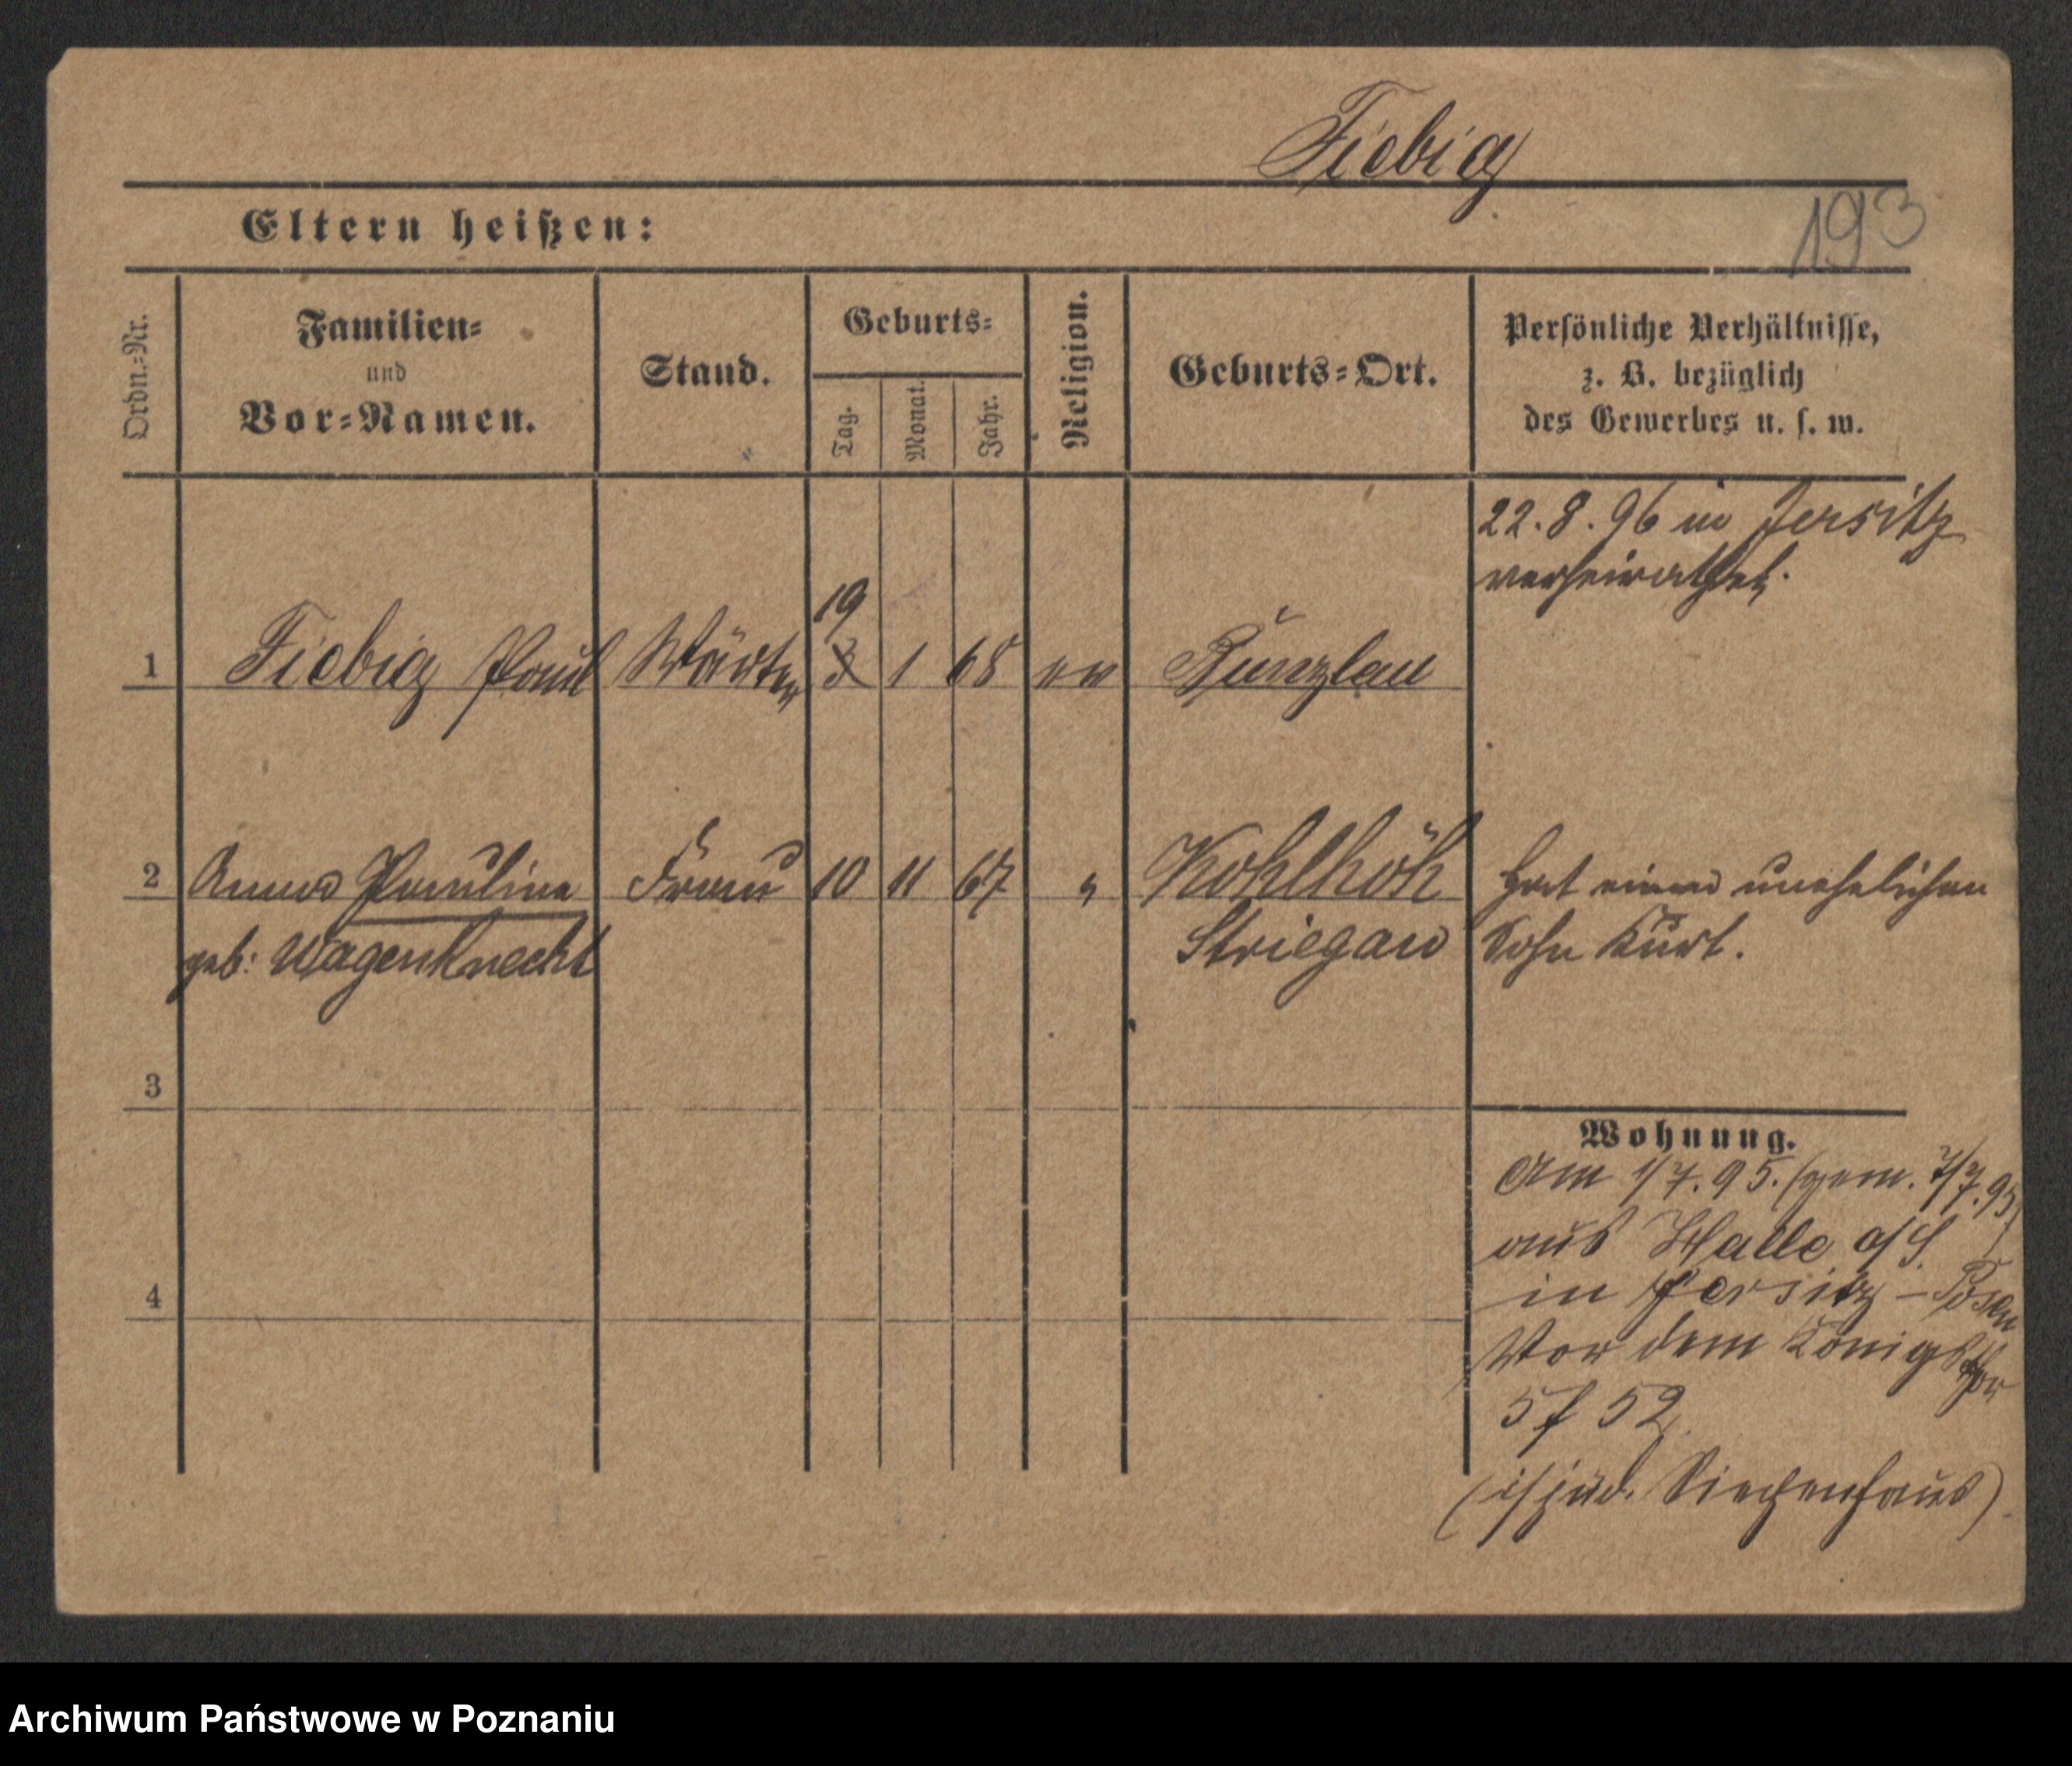 Fiebig
193
Eltern heißen:
Ordn.=Nr.
Familien=
und
Vor=Namen.
Stand.
Geburts=
Tag.
Monat.
Jahr.
Religion.
Geburts=Ort.
Persönliche Verhältnisse,
z. B. bezüglich
des Gewerbes u. s. w.
22. 8. 96 in Jersitz
verheirathet.
19
1 Fiebig Paul Wärter 3 1 68 ev Bunzlau
2 Anna Pauline Frau 10 11 67 " Kohlhöh Hat einen unehelichen
geb: Wagenknecht Striegau Sohn Kurt.
3
Wohnung.
Am 1/7. 95. (gem. 7/7. 95)
aus Halle a/S.
in Jersitz - Posen
4
Vor dem Königsthor
5 f 52
(isjüd. Siechenhaus).
Archiwum Państwowe w Poznaniu